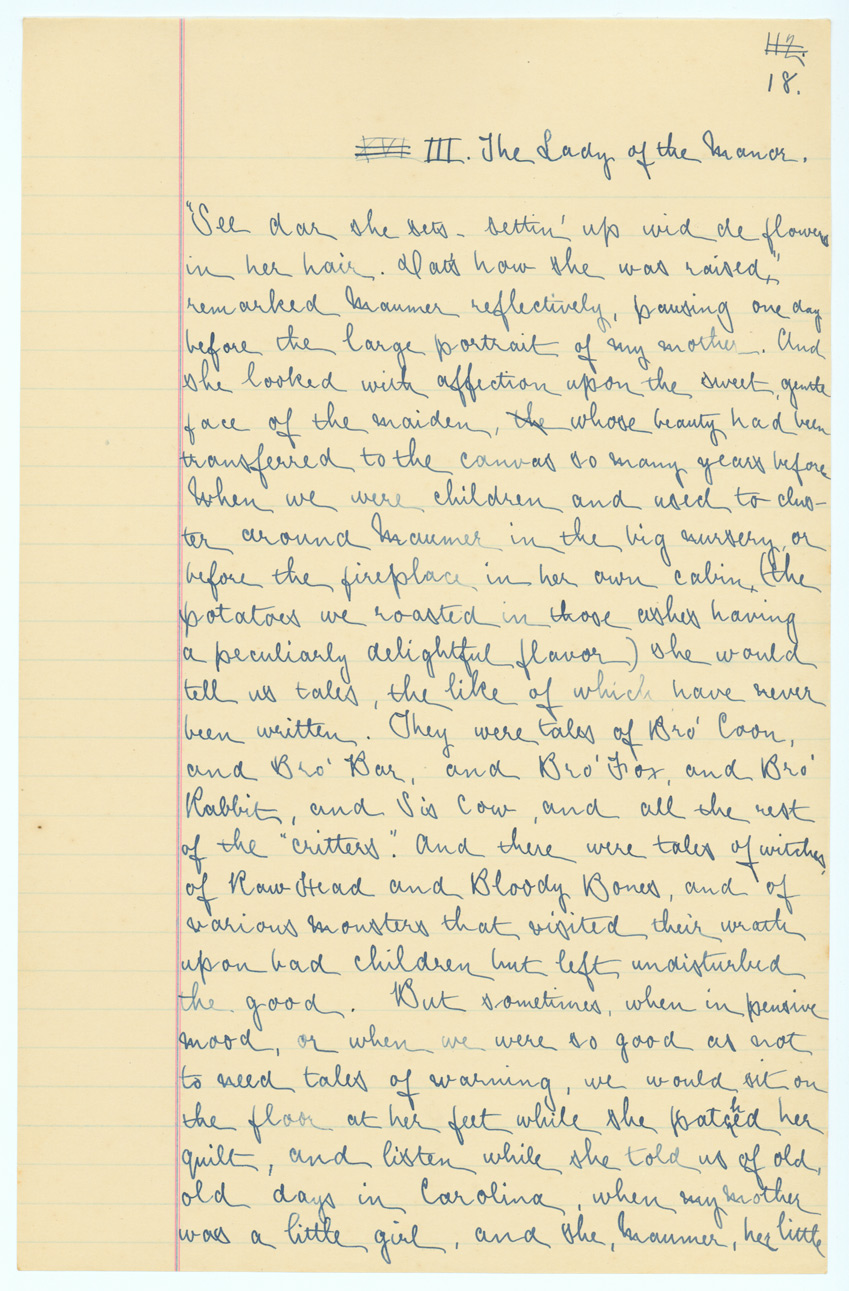 112.
18.
XVI III. The Lady of the Manor.
"See dar she sets - settin' up wid de flowers
in her hair. Dat's how she was raised,"
remarked Maumer reflectively, pausing one day
before the large portrait of my mother. And
she looked with affection upon the sweet, gentle
face of the maiden, the whose beauty had been
transferred to the canvas so many years before.
When we were children and used to clus-
ter around Maumer in the big nursery, or
before the fireplace in her own cabin, (the
potatoes we roasted in those ashes having
a peculiarly delightful flavor) she would
tell us tales, the like of which have never
been written. They were tales of Bro' Coon,
and Bro' Bar, and Bro' Fox, and Bro'
Rabbit, and Sis Cow, and all the rest
of the "critters". And there were tales of witches,
of Raw Head and Bloody Bones, and of
various monsters that visited their wrath
upon bad children but left undisturbed
the good. But sometimes, when in pensive
mood, or when we were so good as not
to need tales of warning, we would sit on
the floor at her feet while she patched her
quilt, and listen while she told us of old,
old days in Carolina, when my mother
was a little girl, and she, Maumer, her little